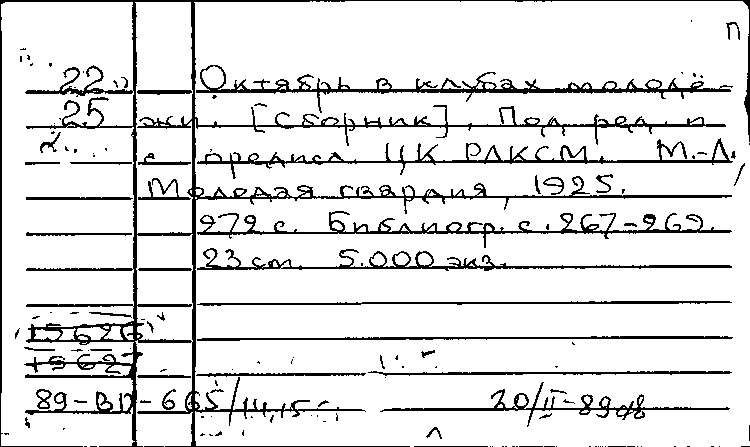 П
22 Октябрь в клубах молодё-
25 жи. [Сборник]. Под ред. и
с предисл. ЦК РЛКСМ. М.-Л.
Молодая гвардия, 1925.
272 с. Библиогр. с. 267-269.
23 см. 5.000 экз.
15626
15627
89-ВП-665/14,15 20/II-89